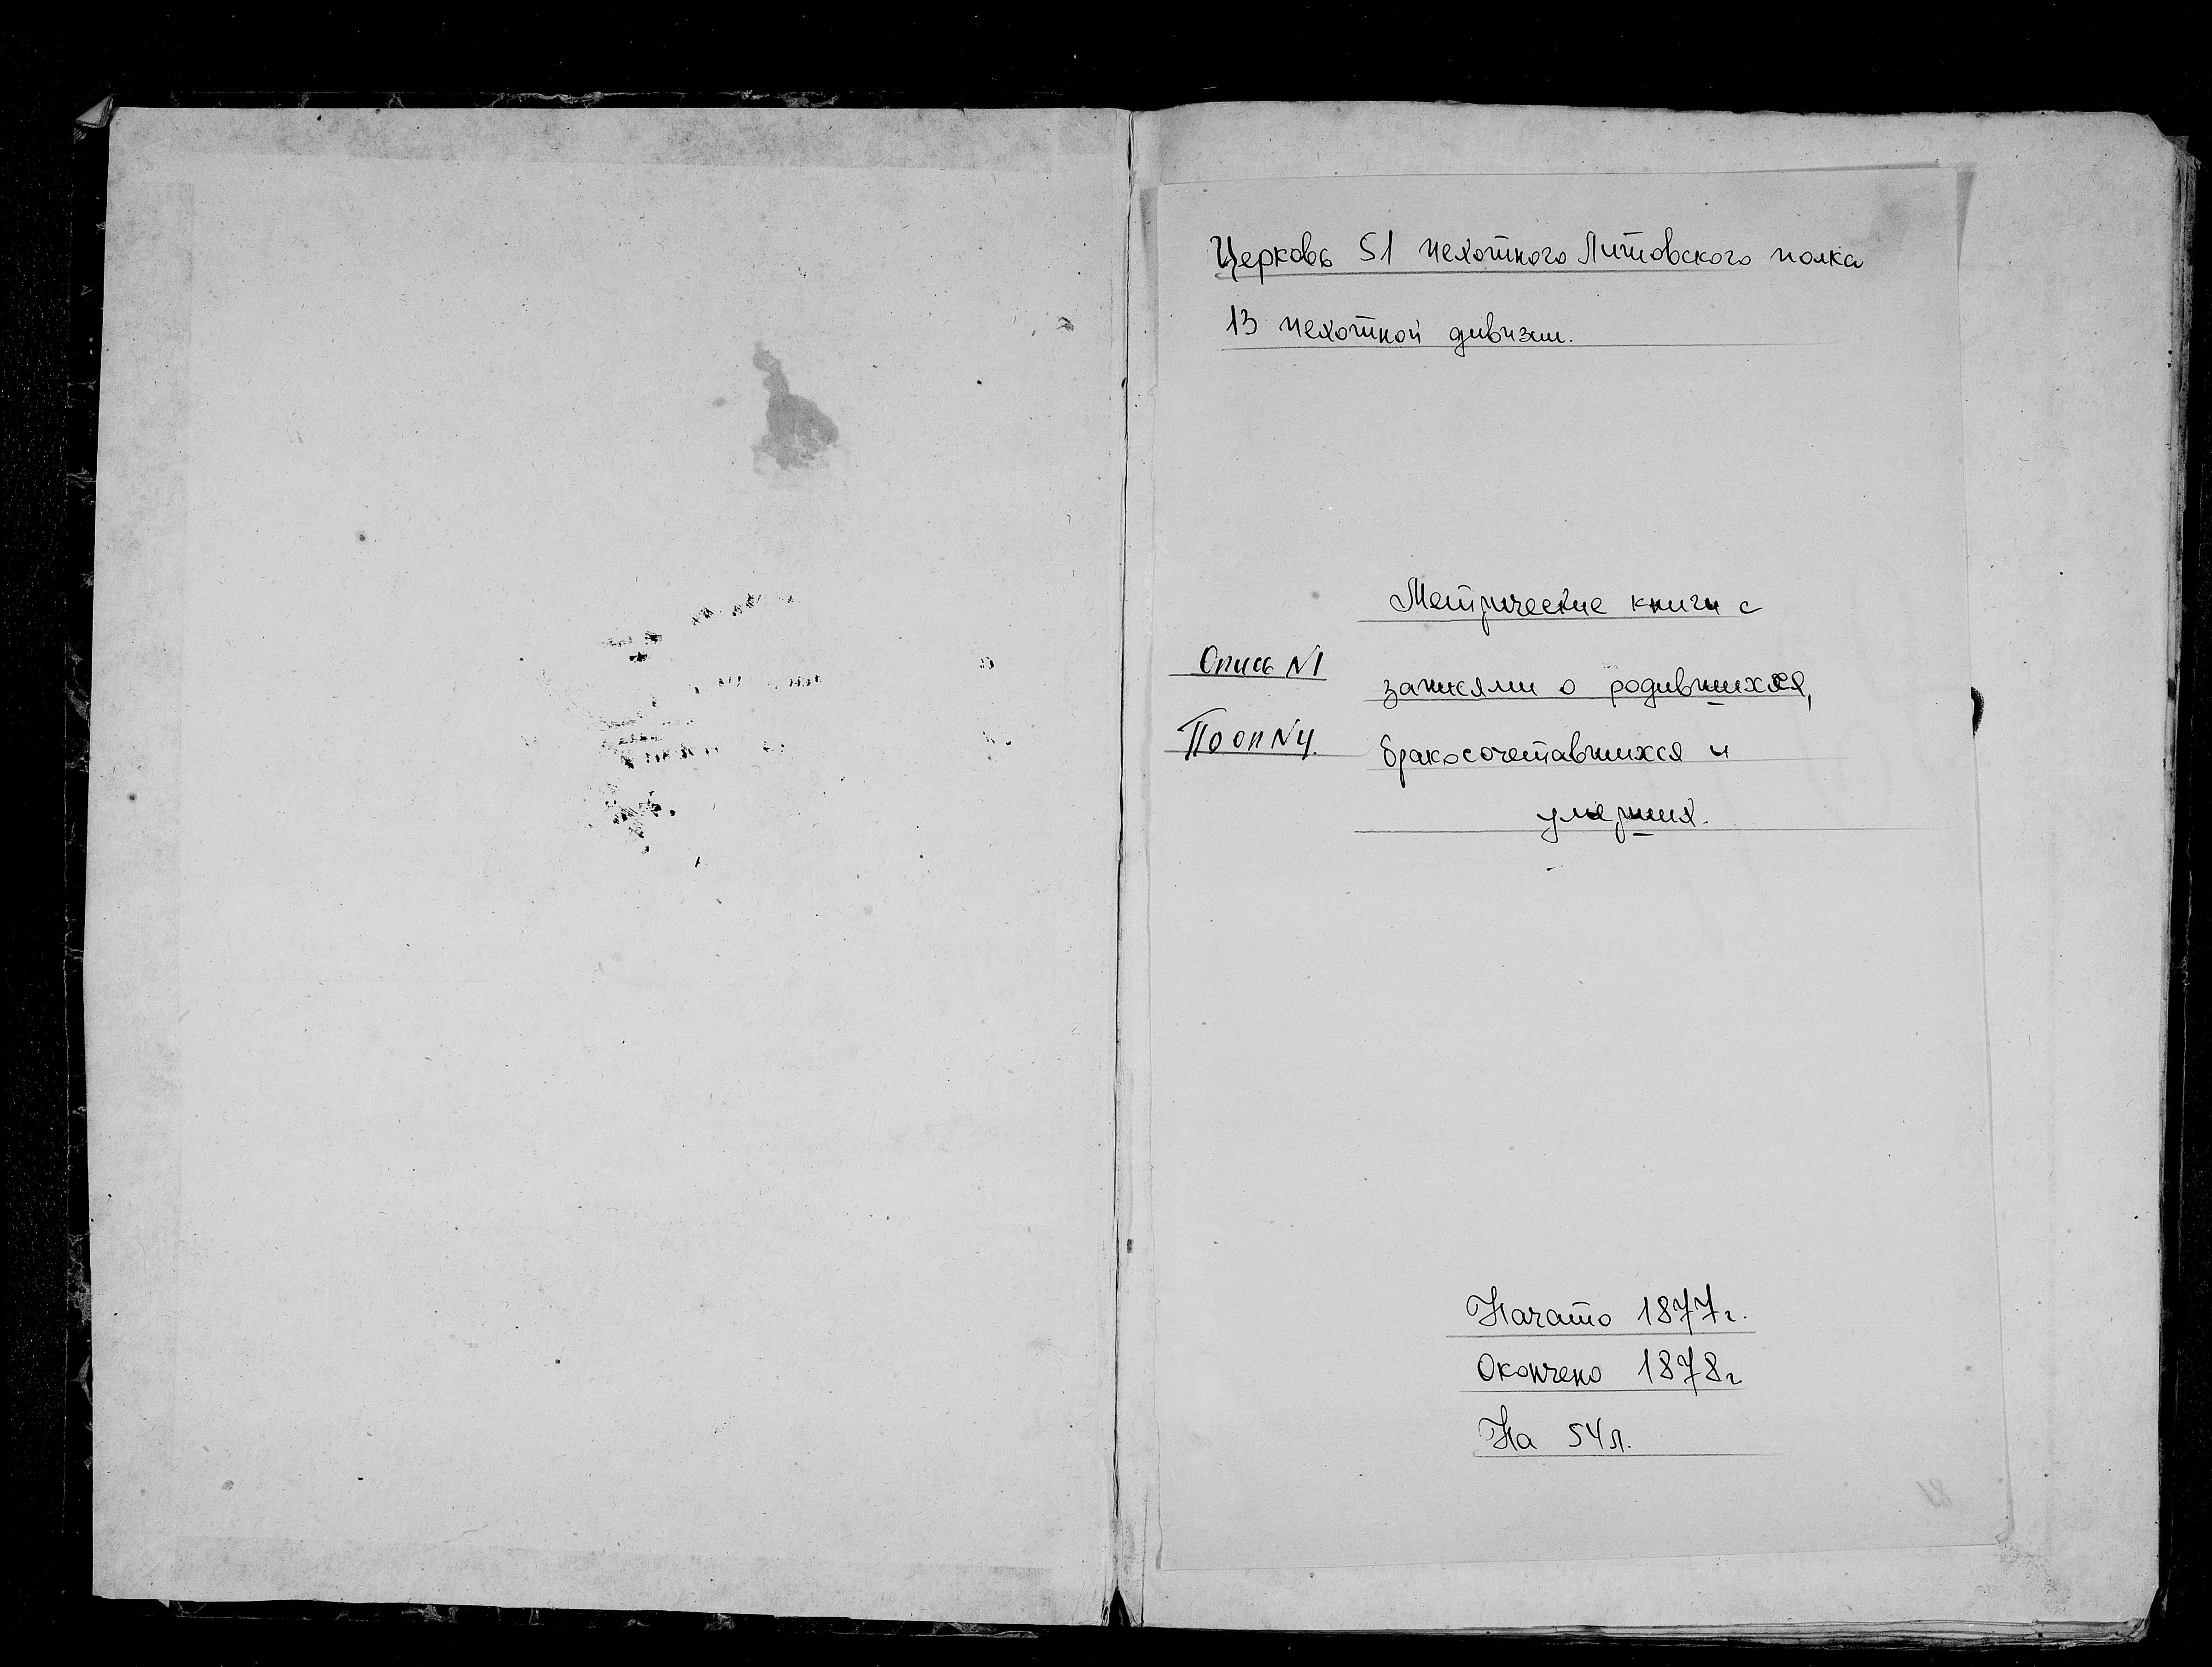 Церковь 51 пехотного Литовского полка
13 пехотной дивизии.
Метрические книги с
Опись N1
записями о родившихся,
По оп N4.
бракосочетавшихся и
умерших.
Начато 1877г.
Окончено 1878г
На 54л.